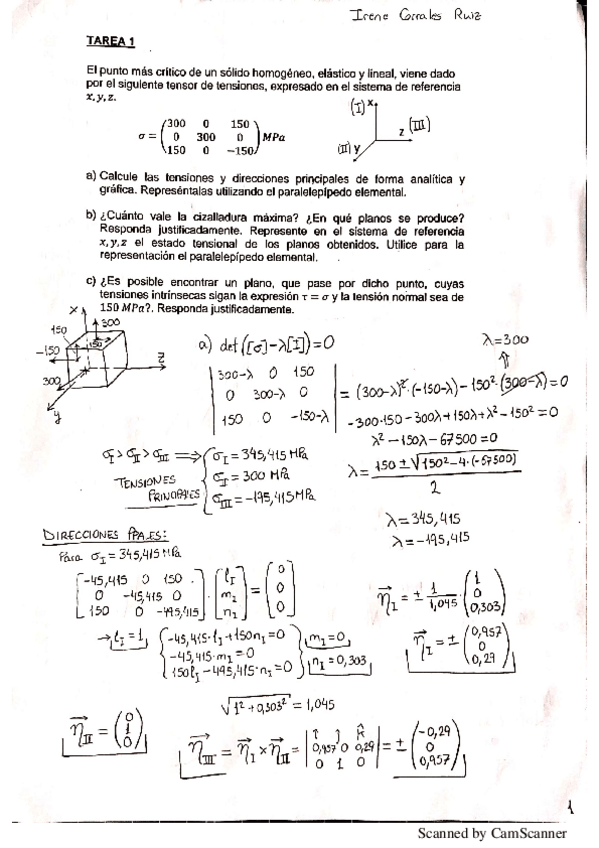 Irene Corrales Ruiz
TAREA 1
El punto más crítico de un sólido homogéneo, elástico y lineal, viene dado
por el siguiente tensor de tensiones, expresado en el sistema de referencia
x, y, z.
(I) x
σ = (300 0 150
0 300 0
150 0 −150) MPa
z (III)
(II) y
a) Calcule las tensiones y direcciones principales de forma analítica y
gráfica. Represéntalas utilizando el paralelepípedo elemental.
b) ¿Cuánto vale la cizalladura máxima? ¿En qué planos se produce?
Responda justificadamente. Represente en el sistema de referencia
x, y, z el estado tensional de los planos obtenidos. Utilice para la
representación el paralelepípedo elemental.
c) ¿Es posible encontrar un plano, que pase por dicho punto, cuyas
tensiones intrínsecas sigan la expresión τ = σ y la tensión normal sea de
150 MPa?. Responda justificadamente.
x
300
150
150
-150
z
300
y
a) det([σ]-λ[I])=0
λ=300
|300-λ 0 150
0 300-λ 0
150 0 -150-λ| = (300-λ)²·(-150-λ)-150²·(300-λ)=0
-300·150-300λ+150λ+λ²-150²=0
λ²-150λ-67500=0
λ= 150±√150²-4·(-67500)
2
λ=345,415
λ=-195,415
σI > σII > σIII ⟹ σI = 345,415 MPa
TENSIONES PRINCIPALES
σI = 300 MPa
σIII = -195,415 MPa
DIRECCIONES PPALES:
Para σI = 345,415 MPa
[-45,415 0 150
0 -45,415 0
150 0 -495,415] · [lI
m2
n1] = (0
0
0)
ηI = ± 1/1,045 · (1
0
0,303)
→ lI=1
-45,415·lI+150nI=0
-45,415·mI=0
150lI-495,415·nI=0
mI=0
nI=0,303
ηI = ± (0,957
0
0,29)
√1²+0,303² = 1,045
ηII = (0
1
0)
ηIII = ηI × ηII = |i j k
0,957 0 0,29
0 1 0| = ± (-0,29
0
0,957)
1
Scanned by CamScanner